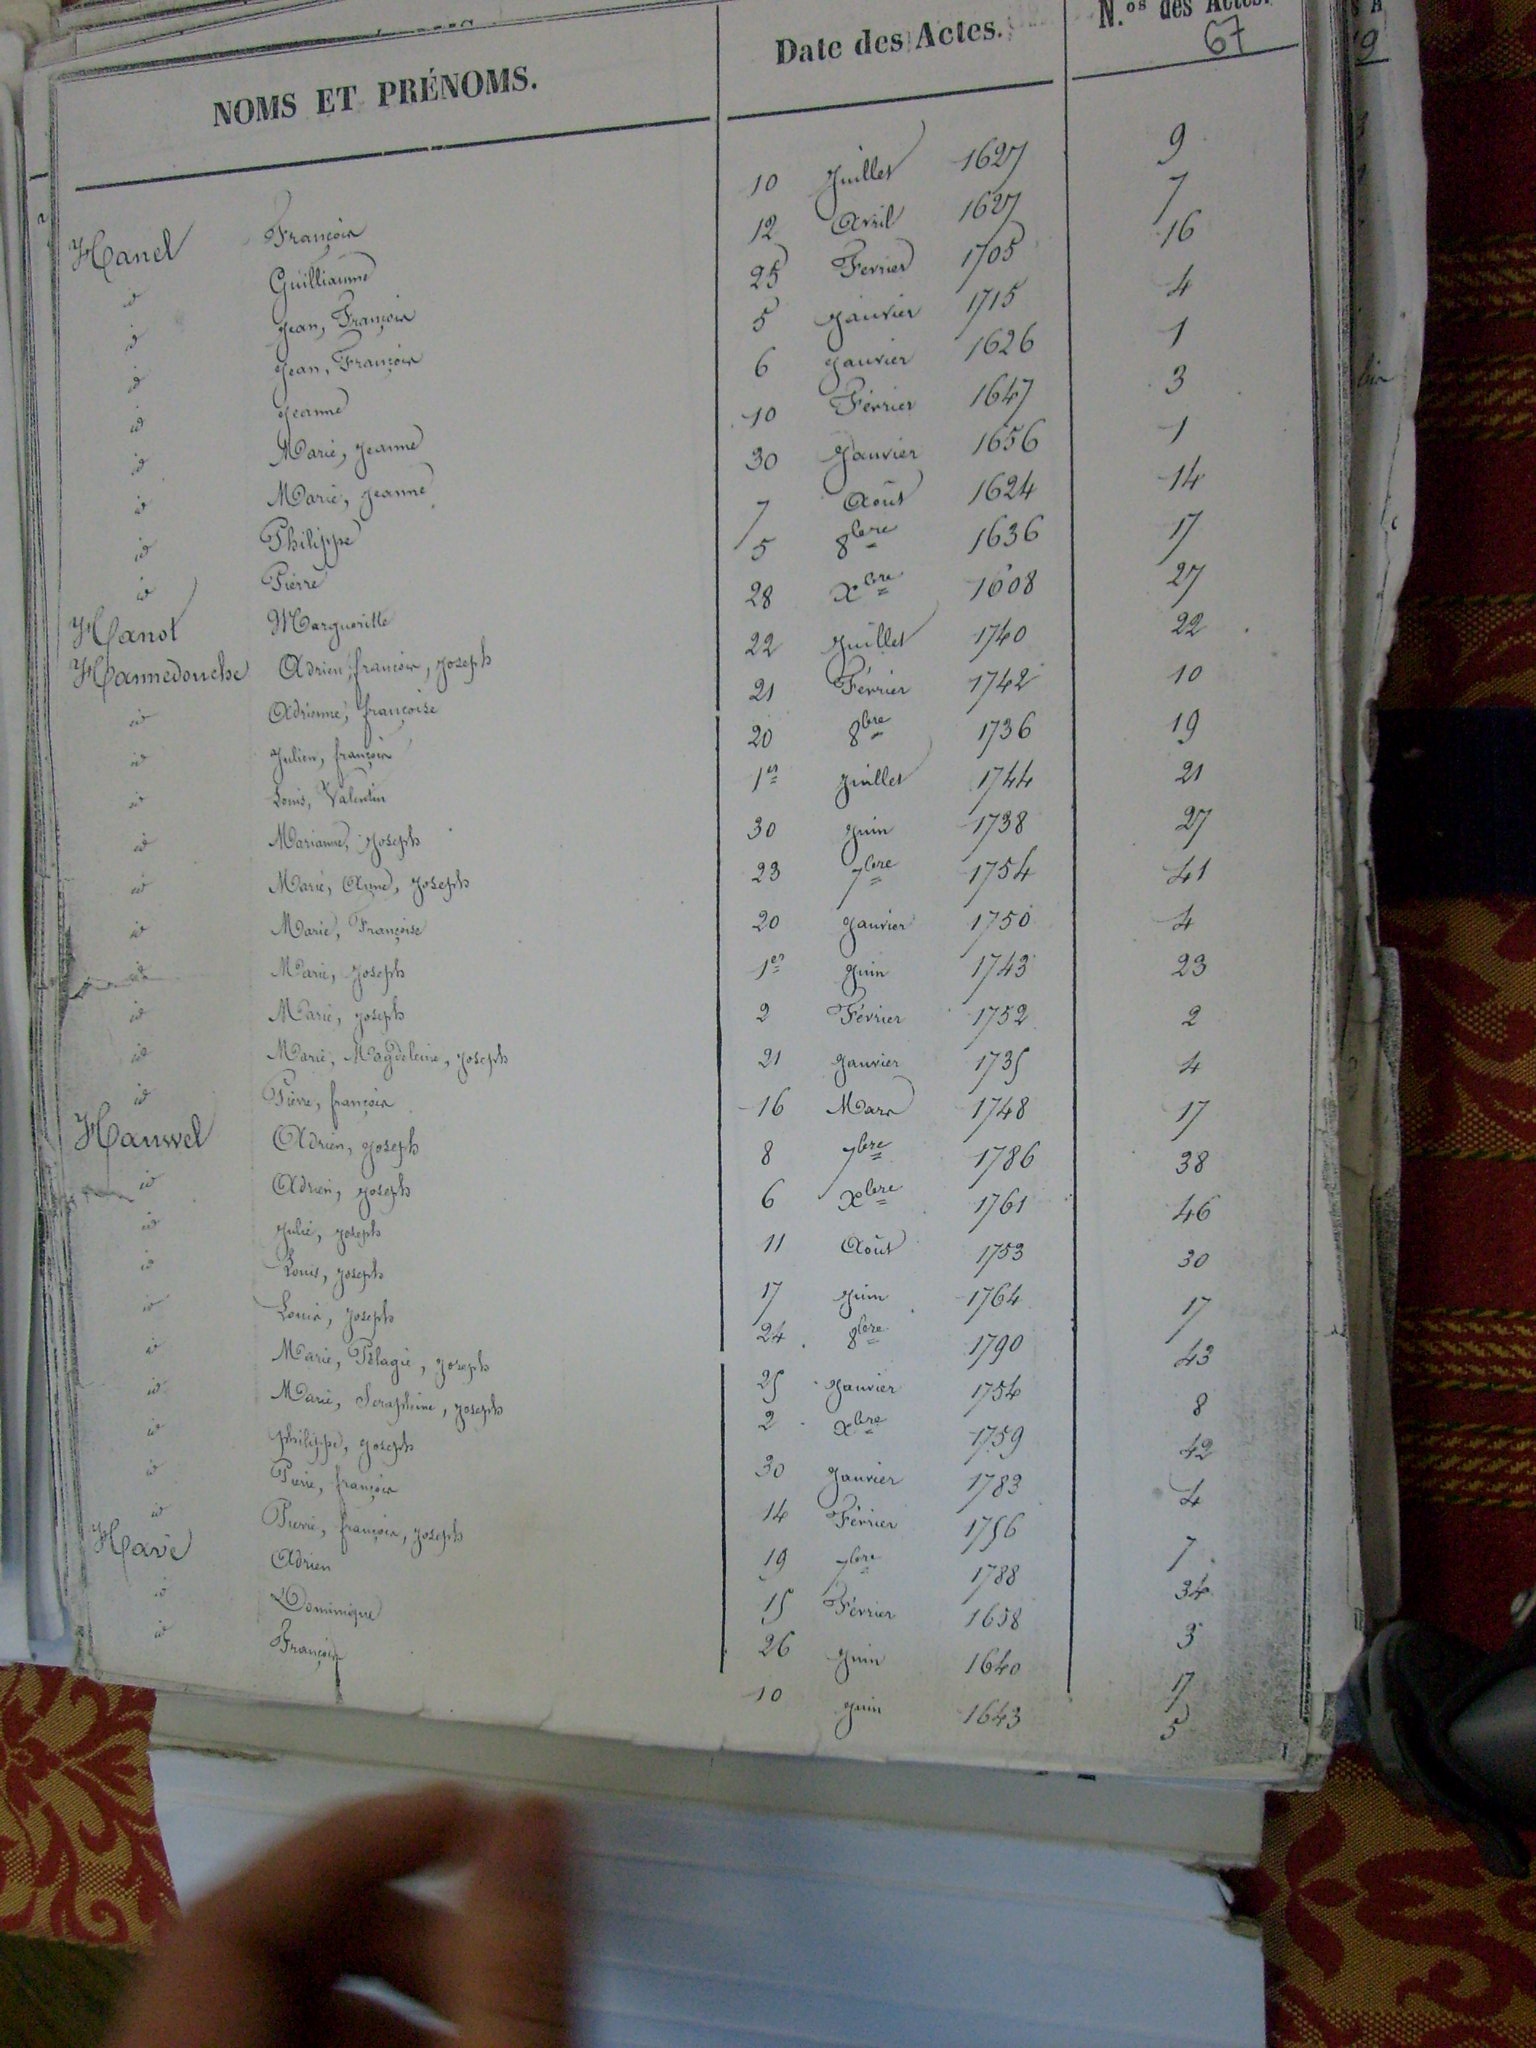 NOMS ET PRÉNOMS. Date des Actes. N.os des Actes.
67
Hanel François 10 Juillet 1627 9
id Guilliaume 12 Avril 1627 7
id Jean, François 25 Fevrier 1705 16
id Jean, François 5 Janvier 1715 4
id Jeanne 6 Janvier 1626 1
id Marie, Jeanne 10 Février 1647 3
id Marie, Jeanne 30 Janvier 1656 1
id Philippe 7 Août 1624 14
id Pierre 5 8bre 1636 17
Hanot Margueritte 28 Xbre 1608 27
Hannedouche Adrien, françois, Joseph 22 Juillet 1740 22
id Adrienne, françoise 21 Février 1742 10
id Julien, françois 20 8bre 1736 19
id Louis, Valentin 1er Juillet 1744 21
id Marianne, Joseph 30 Juin 1738 27
id Marie, Anne, Joseph 23 7bre 1754 41
id Marie, Françoise 20 Janvier 1750 4
id Marie, Joseph 1er Juin 1743 23
id Marie, Joseph 2 Février 1752 2
id Marie, Magdeleine, Joseph 21 Janvier 1735 4
id Pierre, françois 16 Mars 1748 17
Hauwel Adrien, Joseph 8 7bre 1786 38
id Adrien, Joseph 6 Xbre 1761 46
id Julie, Joseph 11 Août 1753 30
id Louis, Joseph 17 Juin 1764 17
id Louis, Joseph 24 8bre 1790 43
id Marie, Pélagie, Joseph 25 Janvier 1754 8
id Marie, Seraphine, Joseph 2 Xbre 1759 42
id philippe, Joseph 30 Janvier 1783 4
id Pierre, françois 14 Février 1756 7
id Pierre, françois, Joseph 19 7bre 1788 34
Havé Adrien 15 Février 1658 3
id Dominique 26 Juin 1640 17
id François 10 Juin 1643 5